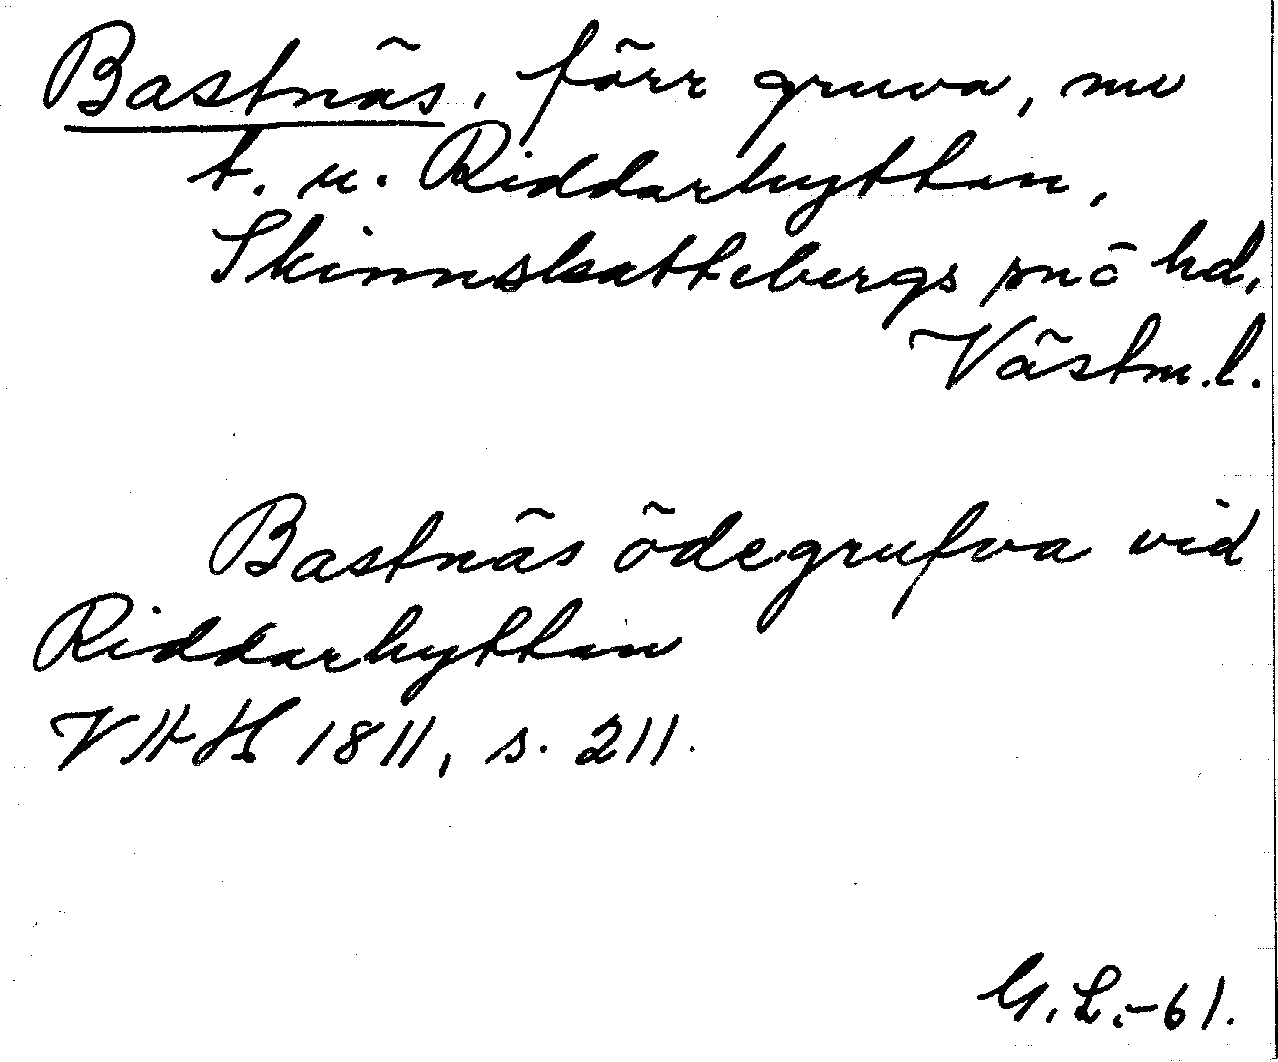 Bastnäs, förr gruva, nu
t. u. Riddarhyttan,
Skinnskattebergs snö hd,
Västm.l.
Bastnäs ödegrufva vid
Riddarhyttan
VHH 1811, s. 211.
G.L.-61.